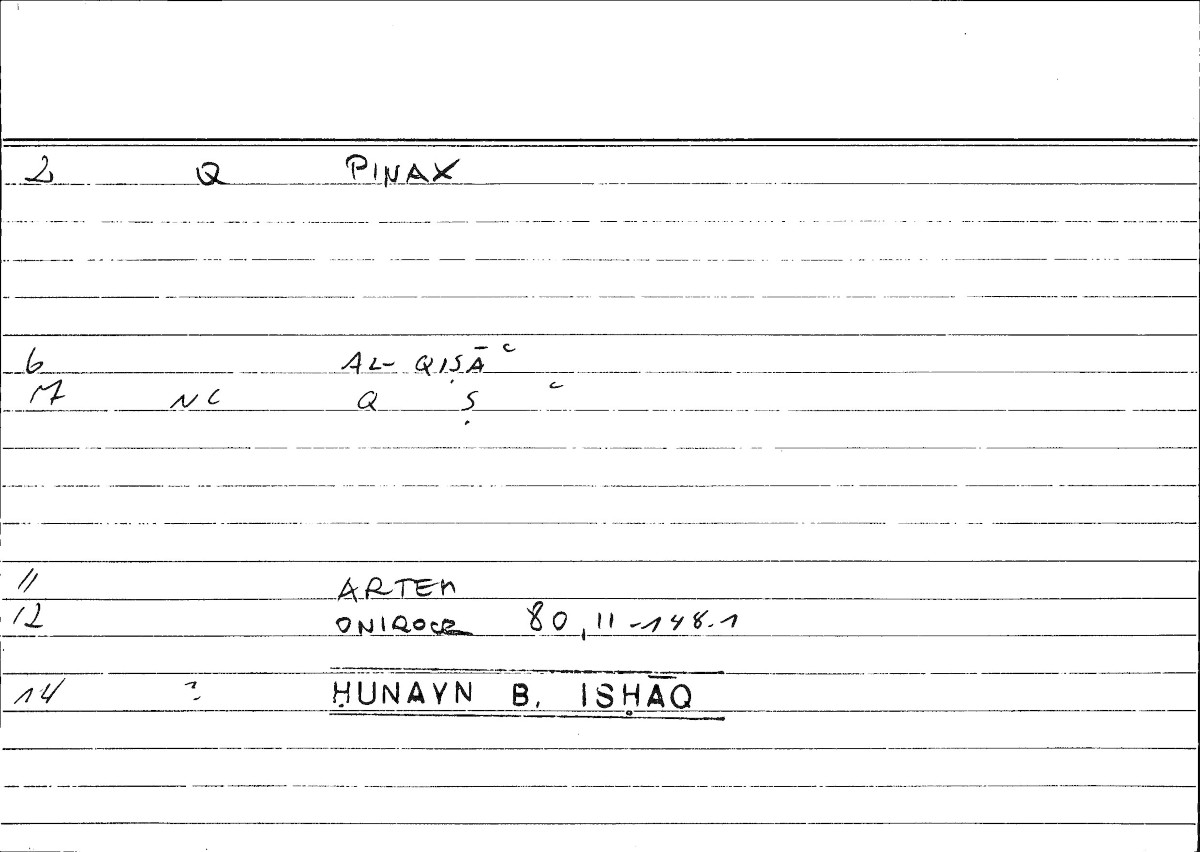 2 Q PINAX
6 AL- QIṢĀ ʿ
17 NC Q Ṣ ʿ
11 ARTEM
12 ONIROCR 80,11-148.1
14 ? ḤUNAYN B. ISḤĀQ